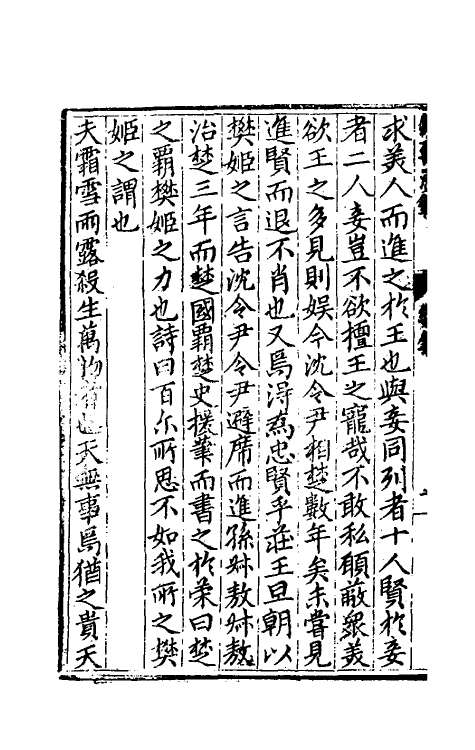 求美人而進之於王也與妾同列者十人賢於妾
者二人妾豈不欲擅王之寵哉不敢私願蔽衆美
欲王之多見則娱今沈令尹相楚數年矣未嘗見
進賢而退不肖也又焉淂爲忠賢乎莊王旦朝以
樊姬之言告沈令尹令尹避席而進孫叔敖叔敖
治楚三年而楚國霸楚史援筆而書之於䇿曰楚
之霸樊姬之力也詩曰百尓所思不如我所之樊
姬之謂也
夫霜雪雨露殺生萬物者也天無事焉猶之貴天